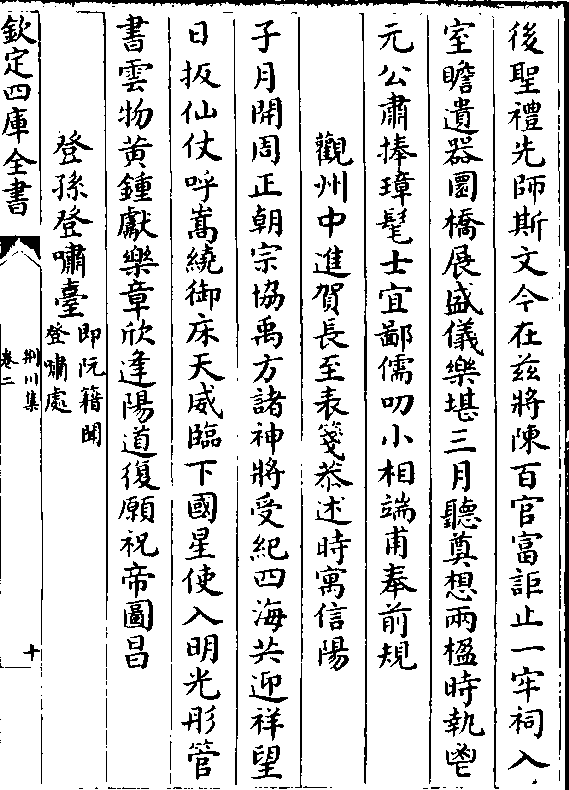 後聖禮先師斯文今在兹將陳百官富詎止一牢祠入
室瞻遺器圜橋展盛儀樂堪三月聽奠想兩楹時執鬯
元公肅捧璋髦士宜鄙儒叨小相端甫奉前規
觀州中進賀長至表箋恭述時寓信陽
子月開周正朝宗協禹方諸神將受紀四海共迎祥望
日扳仙仗呼嵩繞御床天威臨下國星使入明光彤管
書雲物黄鍾獻樂章欣逢陽道復願祝帝圖昌
登孫登嘯臺即阮籍聞登嘯處
欽定四庫全書
荆川集
卷二
十